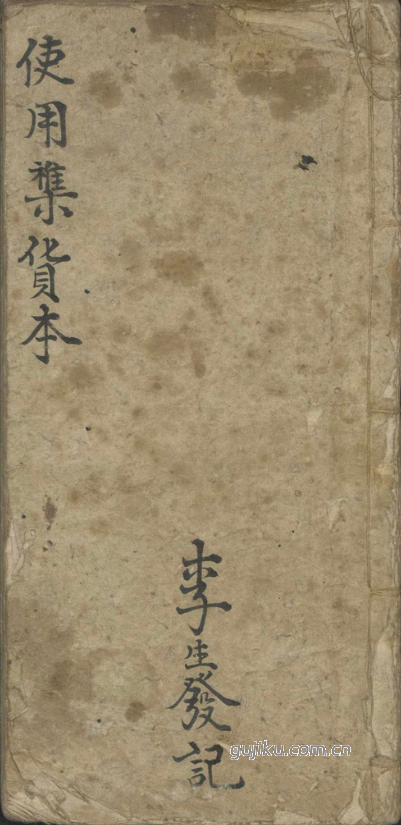 使用襍貨本
李生發記
gujiku.com.cn